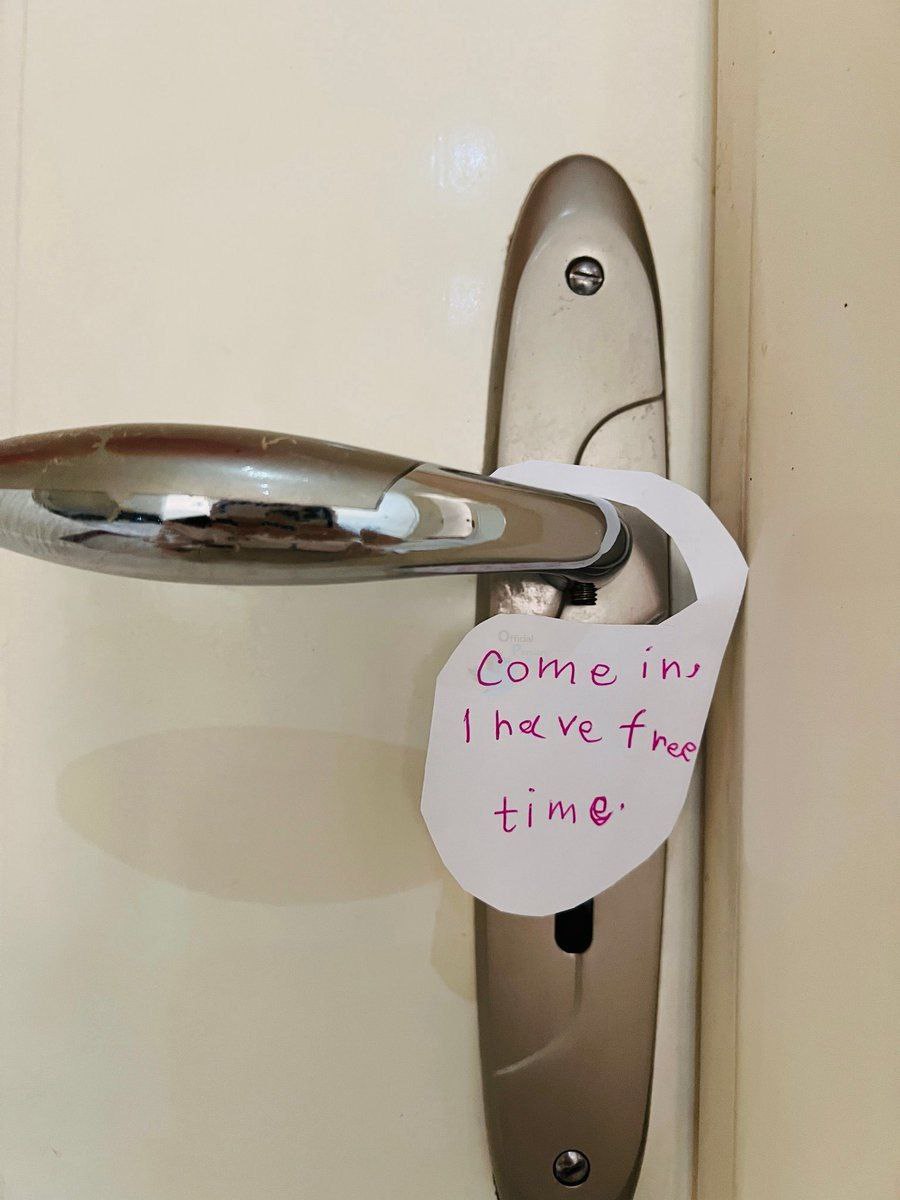 Official
Come in,
I have free
time.